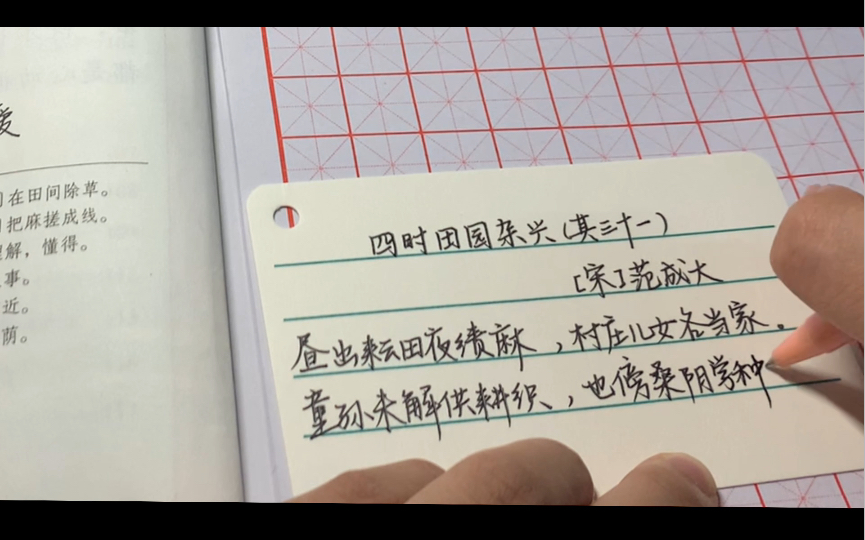 都是
爱
在田间除草。
把麻搓成线。
解，懂得。
事。
近。
荫。
四时田园杂兴(其三十一)
[宋]范成大
昼出耘田夜绩麻，村庄儿女各当家。
童孙未解供耕织，也傍桑阴学种